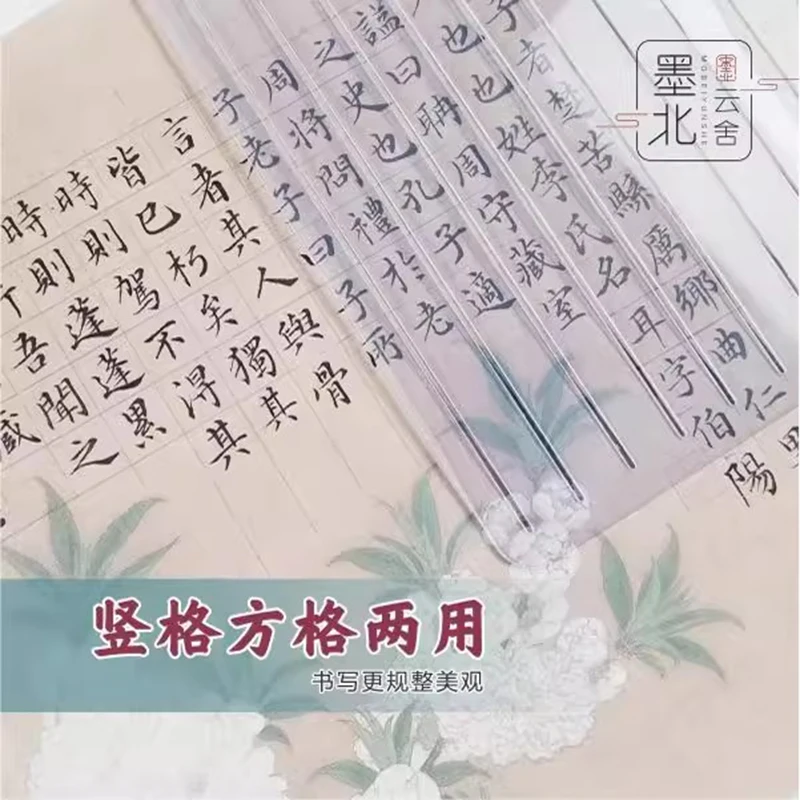 墨北
云舍
MOBEIYUNSHE
子者楚苦縣厲鄉曲仁
也也姓李氏名耳字伯陽
謚曰聃周守藏室
之史也孔子適
周將問禮於老
子老子曰子所
言者其人與骨
皆已朽矣獨其
時則駕不得其
時則蓬蓬累
吾聞之
藏
竖格方格两用
书写更规整美观